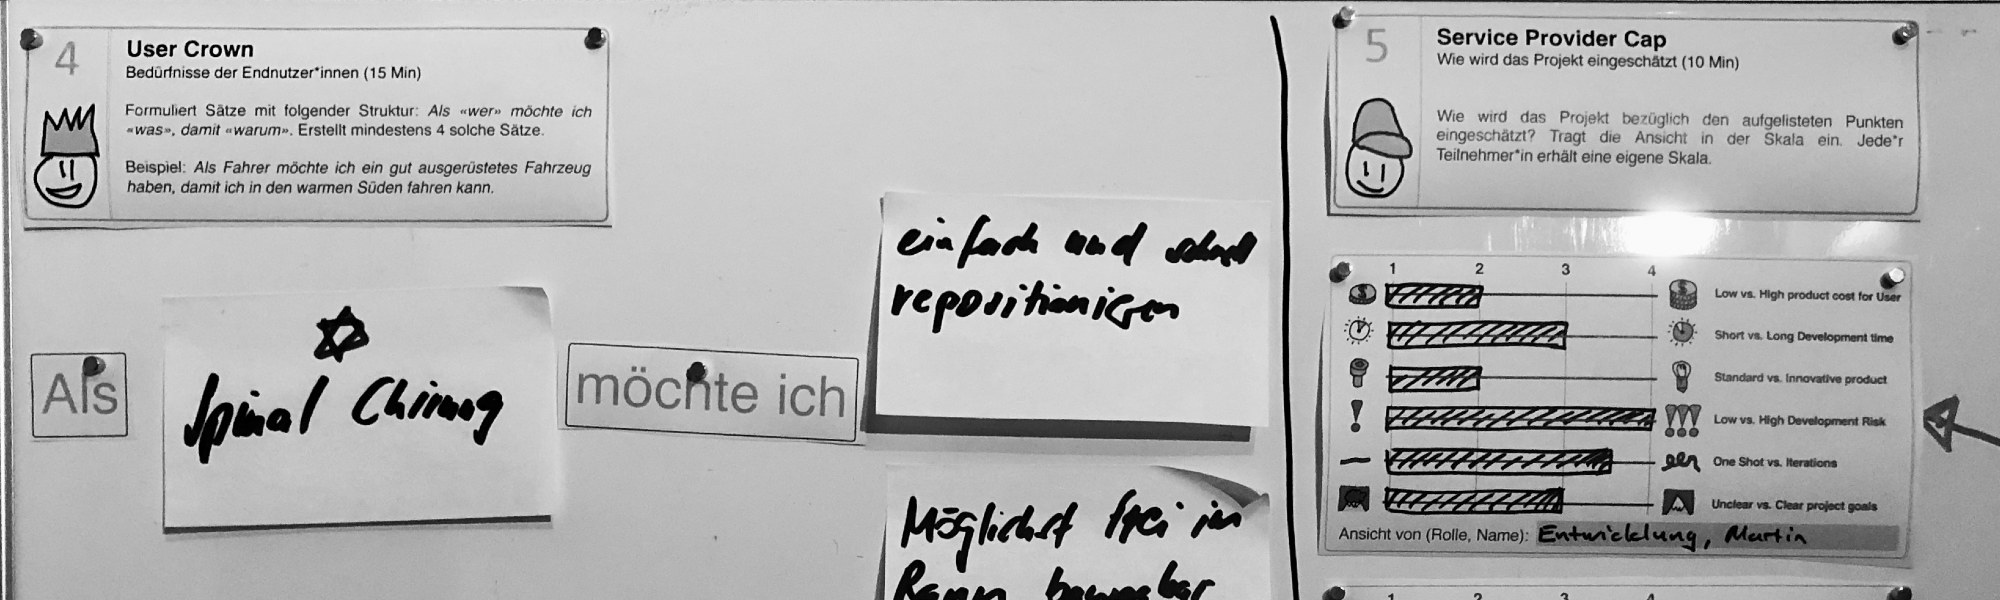 4
User Crown
Bedürfnisse der Endnutzer*innen (15 Min)
Formuliert Sätze mit folgender Struktur: Als «wer» möchte ich
«was», damit «warum». Erstellt mindestens 4 solche Sätze.
Beispiel: Als Fahrer möchte ich ein gut ausgerüstetes Fahrzeug
haben, damit ich in den warmen Süden fahren kann.
Als
Spinal Chirurg
möchte ich
einfach und schnell
repositionieren
Möglichst frei im
Raum bewegbar
5
Service Provider Cap
Wie wird das Projekt eingeschätzt (10 Min)
Wie wird das Projekt bezüglich den aufgelisteten Punkten
eingeschätzt? Tragt die Ansicht in der Skala ein. Jede*r
Teilnehmer*in erhält eine eigene Skala.
1 2 3 4
Low vs. High product cost for User
Short vs. Long Development time
Standard vs. Innovative product
Low vs. High Development Risk
One Shot vs. Iterations
Unclear vs. Clear project goals
Ansicht von (Rolle, Name): Entwicklung, Martin
1 2 3 4